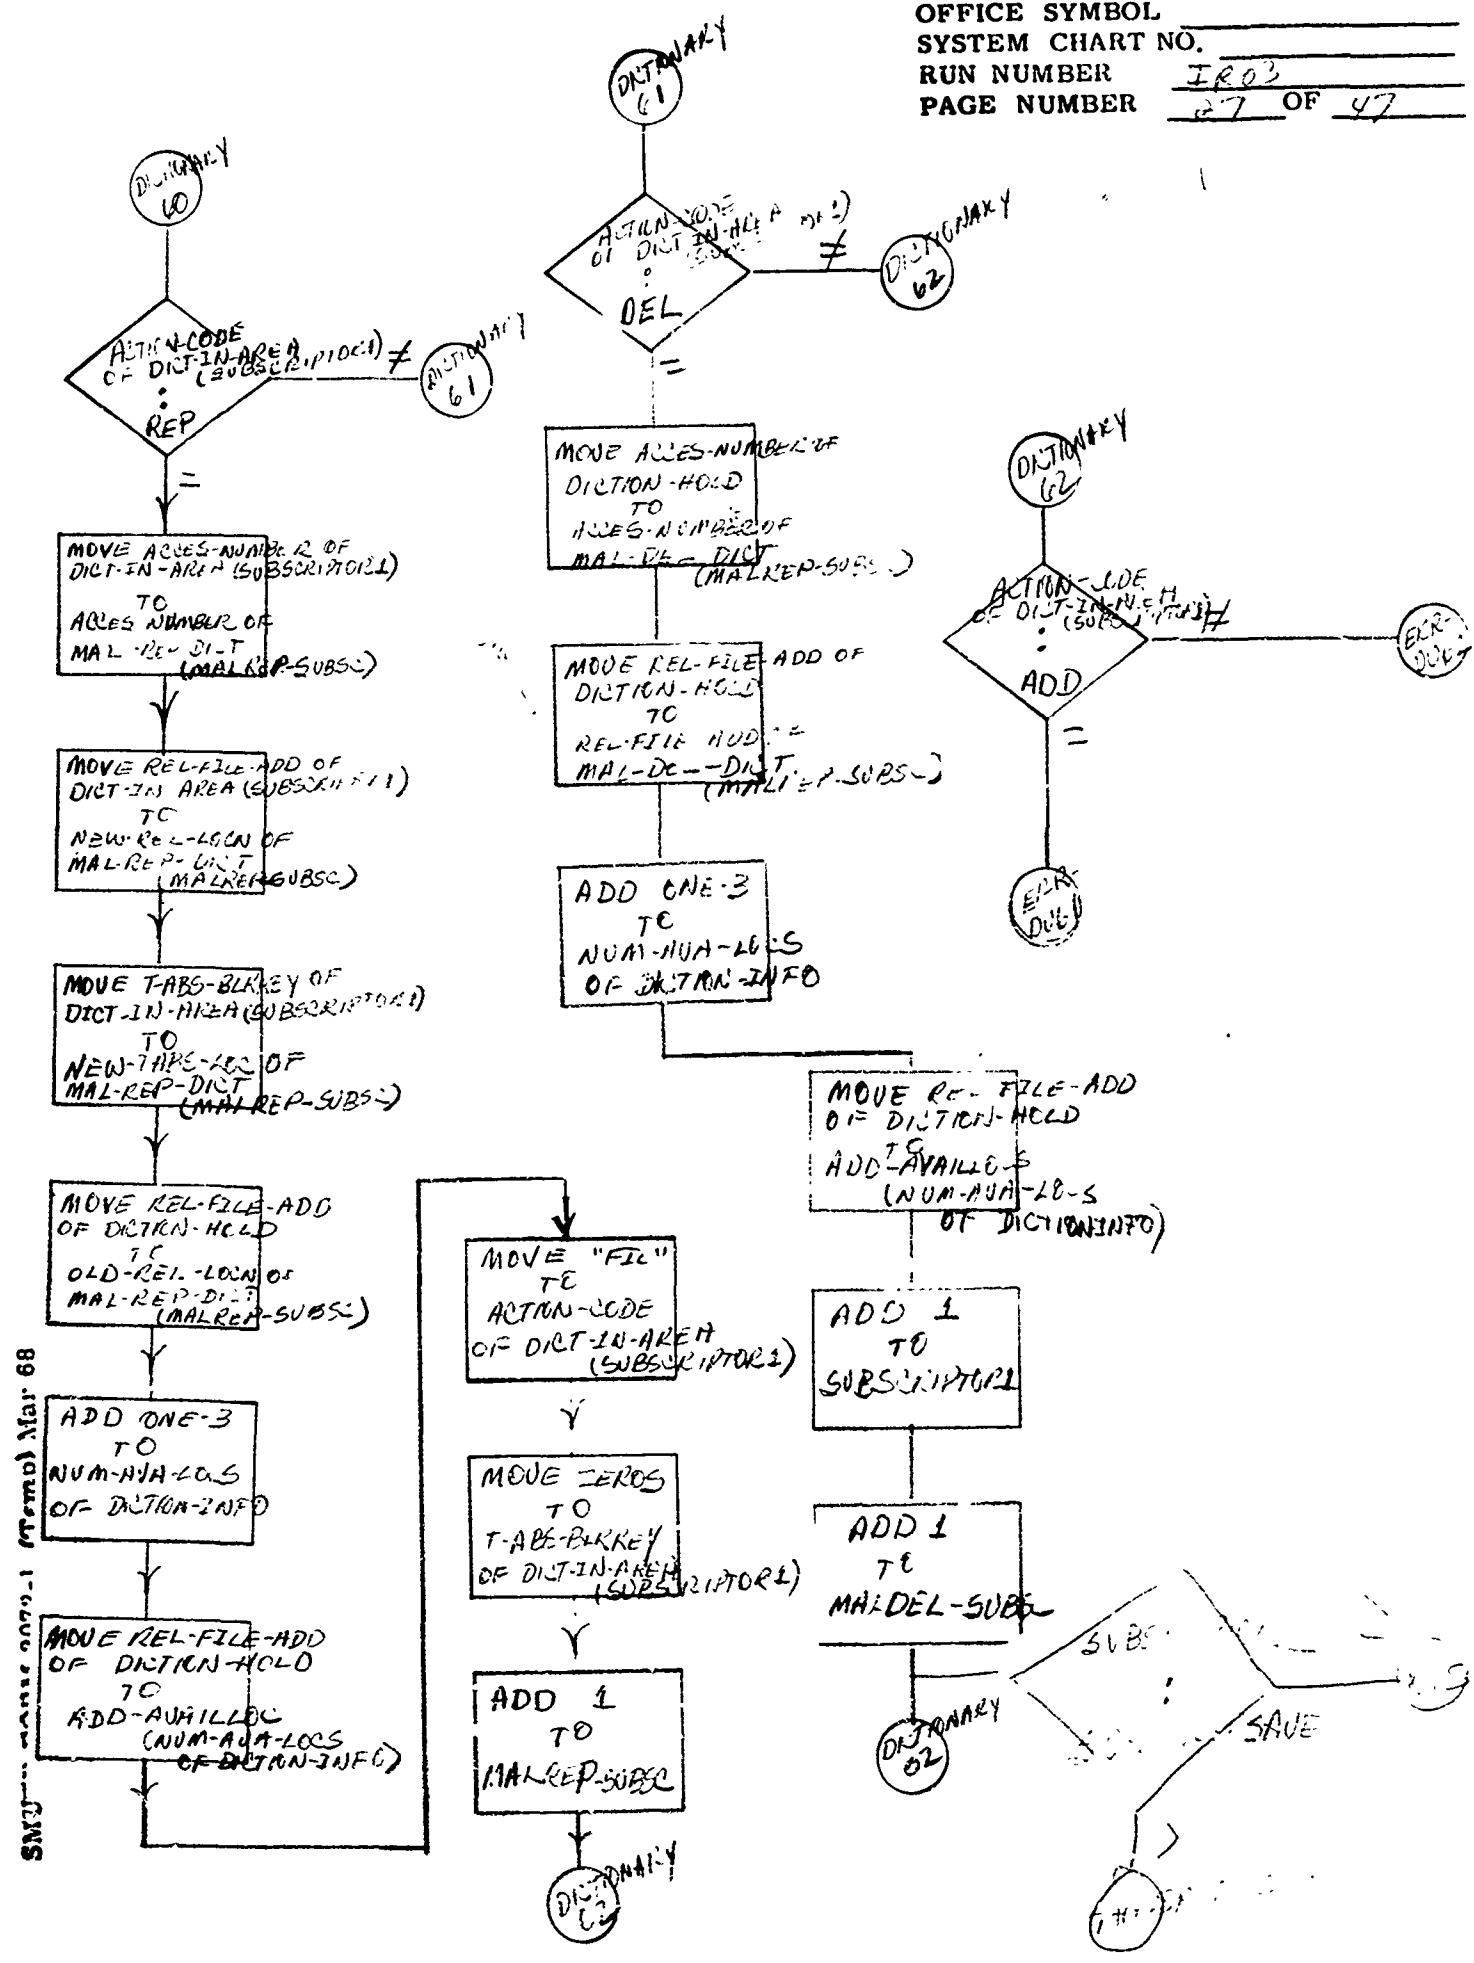 OFFICE SYMBOL
SYSTEM CHART NO.
RUN NUMBER IR03
PAGE NUMBER 27 OF 47
DICTIONARY
60
ACTION-CODE
OF DICT-IN-AREA
(SUBSCRIPTOR1) ≠
:
REP
=
DICTIONARY
61
MOVE ACCES-NUMBER OF
DICT-IN-AREA (SUBSCRIPTOR1)
TO
ACCES NUMBER OF
MAL-REP-DICT
(MALREP-SUBSC)
MOVE REL-FILE-ADD OF
DICT-IN AREA (SUBSCRIPTOR1)
TO
NEW-REL-LOCN OF
MAL-REP-DICT
(MALREP-SUBSC)
MOVE T-ABS-BLKKEY OF
DICT-IN-AREA (SUBSCRIPTOR1)
TO
NEW-TABS-LOC OF
MAL-REP-DICT
(MALREP-SUBSC)
MOVE REL-FILE-ADD
OF DICTION-HOLD
TO
OLD-REL-LOCN OF
MAL-REP-DICT
(MALREP-SUBSC)
ADD ONE-3
TO
NUM-AVA-LOCS
OF DICTION-INFO
MOVE REL-FILE-ADD
OF DICTION-HOLD
TO
ADD-AVAILLOC
(NUM-AVA-LOCS
OF DICTION-INFO)
MOVE "FIL"
TO
ACTION-CODE
OF DICT-IN-AREA
(SUBSCRIPTOR1)
MOVE ZEROS
TO
T-ABS-BLKKEY
OF DICT-IN-AREA
(SUBSCRIPTOR1)
ADD 1
TO
MALREP-SUBSC
DICTIONARY
62
DICTIONARY
61
ACTION-CODE
OF DICT-IN-AREA
:
DEL
≠
=
DICTIONARY
62
MOVE ACCES-NUMBER OF
DICTION-HOLD
TO
ACCES-NUMBER OF
DICT
(MALREP-SUBSC)
MOVE REL-FILE-ADD OF
DICTION-HOLD
TO
REL-FILE
DICT
(MALREP-SUBSC)
ADD ONE-3
TO
NUM-AVA-LOCS
OF DICTION-INFO
MOVE REL-FILE-ADD
OF DICTION-HOLD
TO
ADD-AVAILLOCS
(NUM-AVA-LOCS
OF DICTIONINFO)
ADD 1
TO
SUBSCRIPTOR1
ADD 1
TO
MALDEL-SUBSC
DICTIONARY
02
DICTIONARY
62
ACTION-CODE
OF DICT-IN-AREA
(SUBSCRIPTOR1) ≠
:
ADD
=
:
SAVE
>
SMU
(Temp) Mar 68